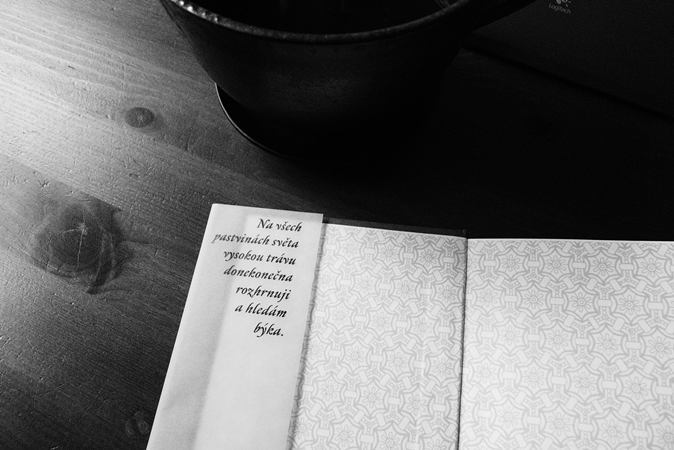 logitech
Na všech
pastvinách světa
vysokou trávu
donekonečna
rozhrnuji
a hledám
býka.